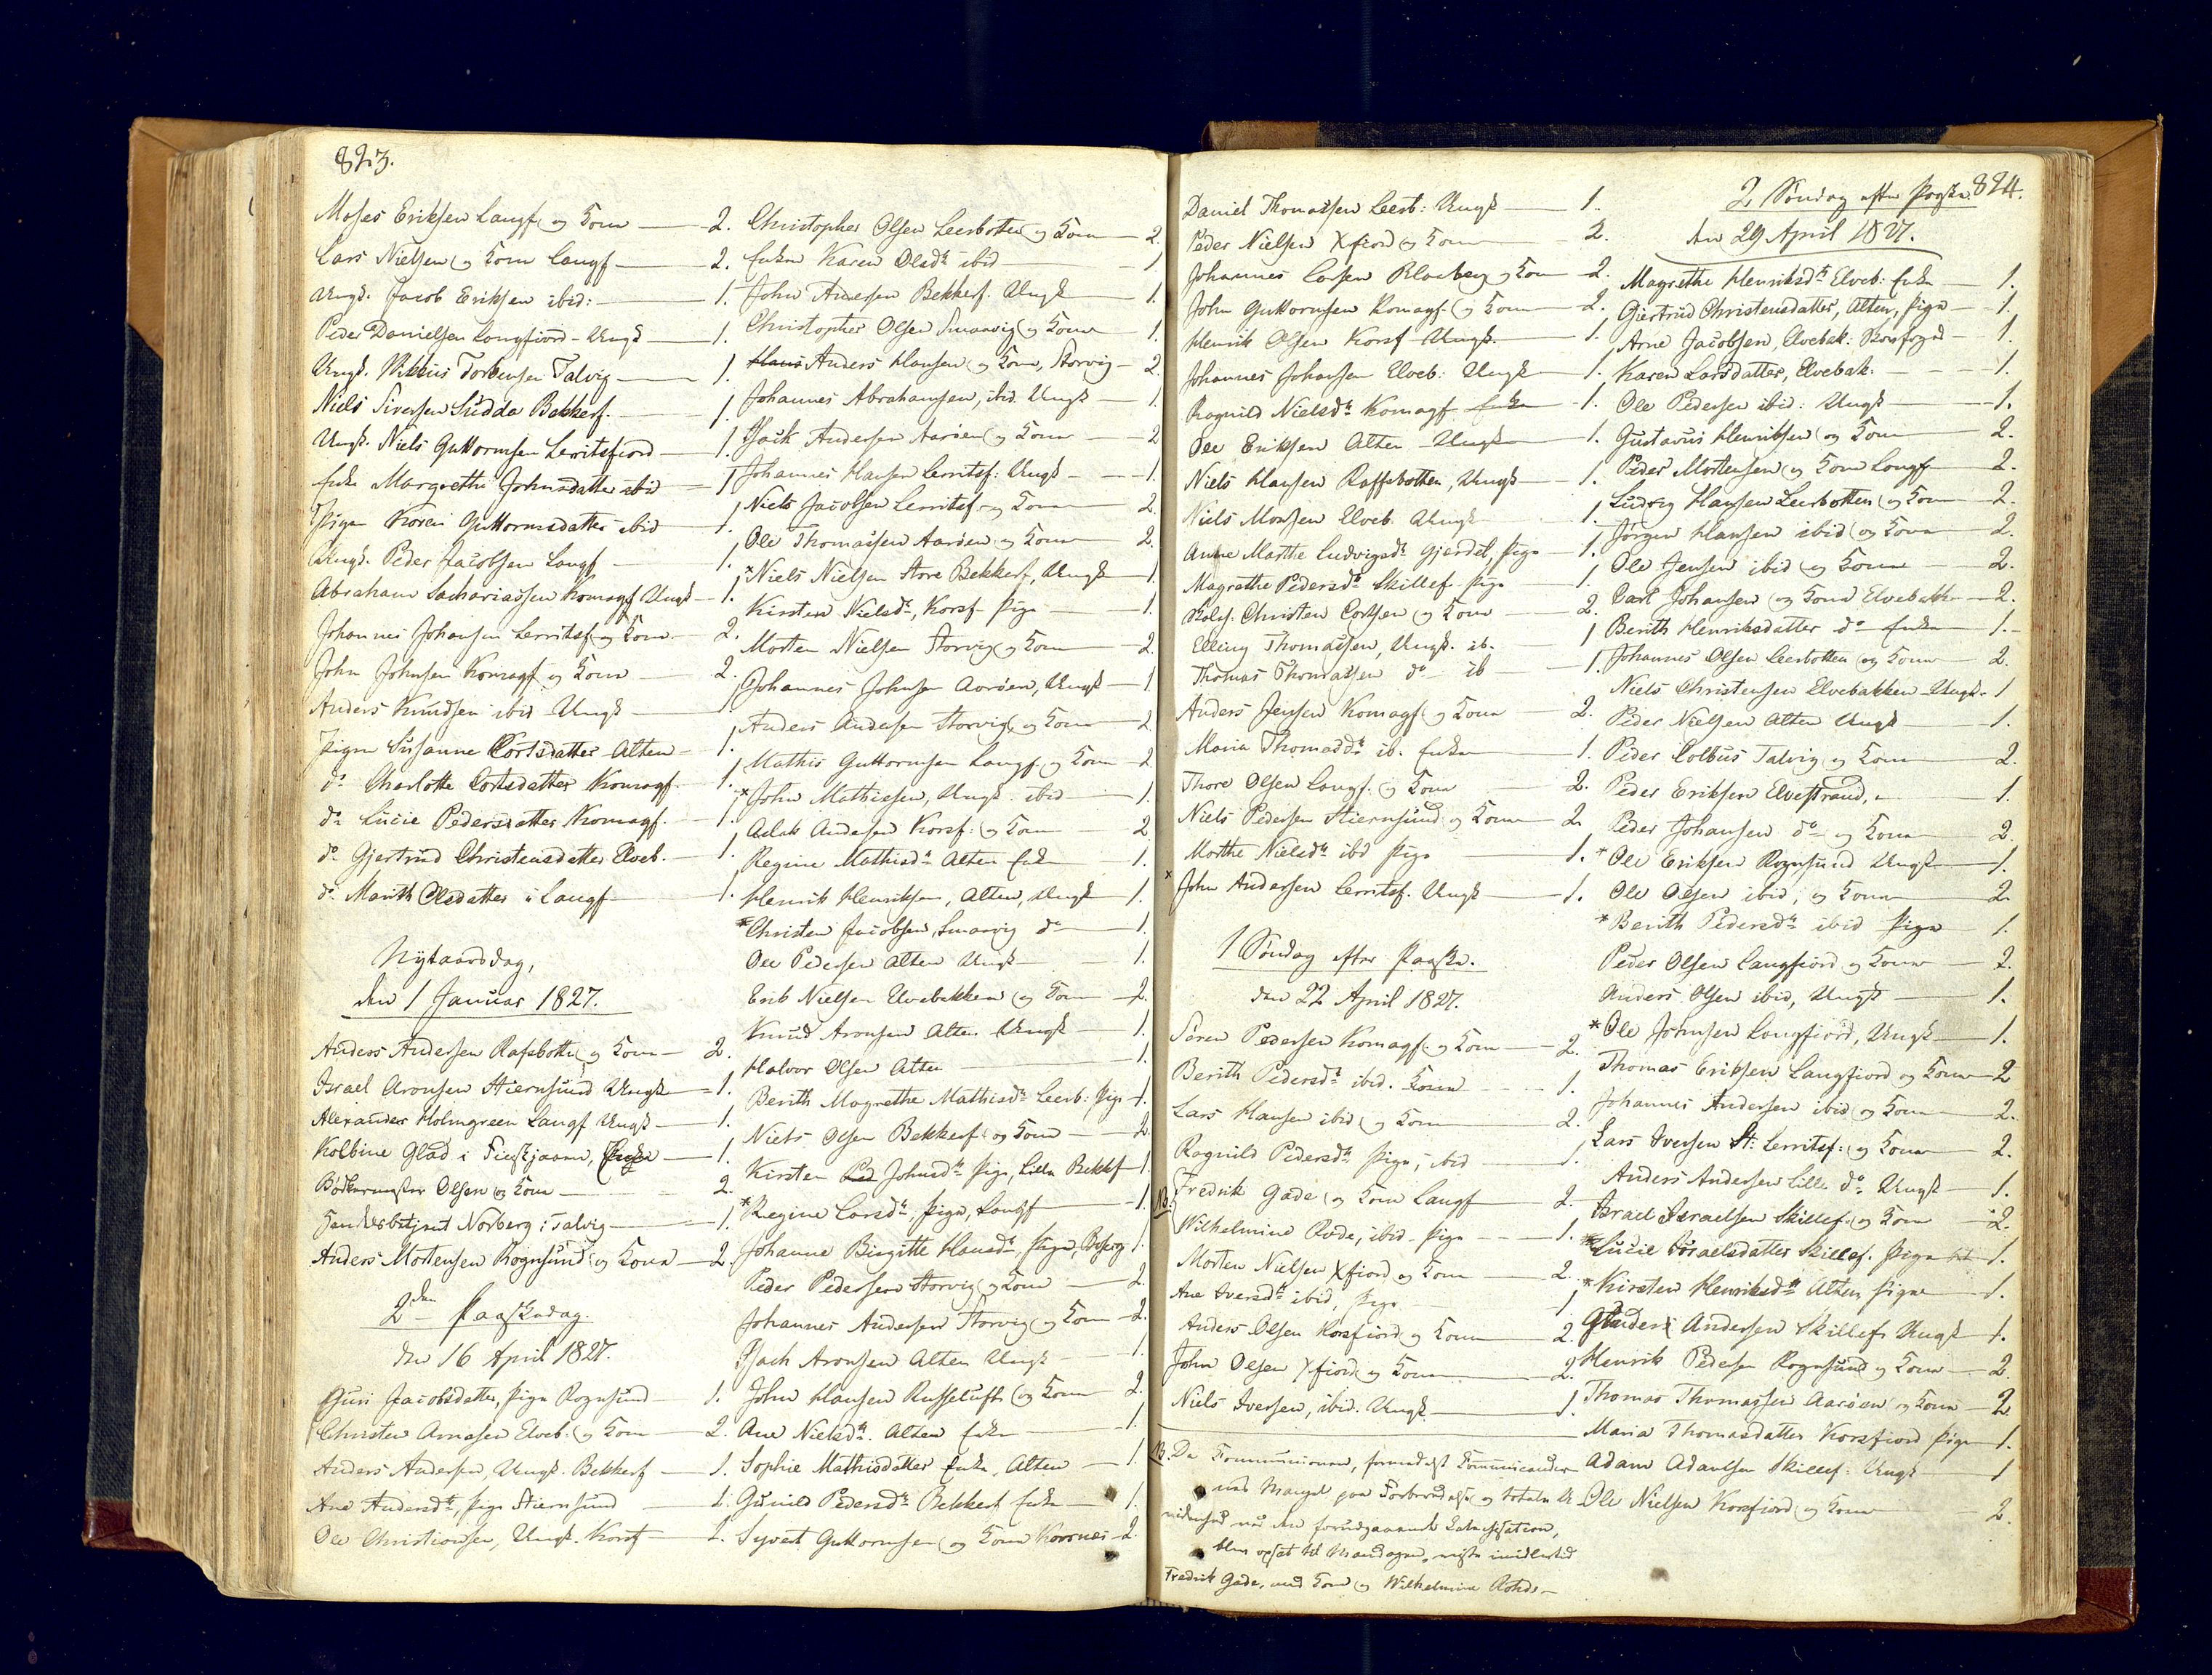 823.
Moses Eriksen Langf. og Kone 2.
Lars Nielsen og Kone Langf 2.
Ungk. Jacob Eriksen ibid: 1.
Peder Danielsen Langfiord - Ungk 1.
Ungk. Mikkus Torbensen Talvig 1.
Niels Siversen Sudda Bekkerf. 1.
Ungk. Niels Guttormsen Lerritsfiord 1.
Enke Margrethe Johnsdatter ibid 1
Pige Karen Guttormsdatter ibid 1.
Ungk. Peder Jacobsen Langf 1.
Abraham Sachariassen Komagf Ungk 1.
Johannes Johansen Lerritsf og Kone 2.
John Johnsen Komagf og Kone 2.
Anders Knudsen ibid Ungk 1
Pigen Susanne Cortsdatter Alten 1.
do Charlotte Cortsdatter Komagf. 1.
do Lucie Pedersdatter Komagf. 1.
do Gjertrud Christensdatter Elveb. 1.
do Marith Olsdatter i Langf 1.
Nytaarsdag,
den 1 Januar 1827.
Anders Andersen Rafsbotten og Kone 2.
Israel Aronsen Stiernsund Ungk 1.
Alexander Holmgreen Langf Ungk 1.
Kolbine Glad i 1.
Bødkermester Olsen og Kone 2.
Norberg i Talvig 1.
Anders Mortensen Rognsund og Kone 2.
2den Paaskedag.
den 16 April 1827.
Guri Jacobsdatter, Pige Rognsund 1.
Christen Arnesen Elveb. og Kone 2.
Anders Andersen, Ungk. Bekkerf 1.
Ane Andersdtr, Pige Stiernsund 1.
Ole Christiansen, Ungk. Korsf 1.
Christopher Olsen Leerbotten og Kone 2.
Enken Karen Olsdtr ibid 1
John Andersen Bekkerf. Ungk 1.
Christopher Olsen Smaavig og Kone 1.
Hans Anders Hansen og Kone, Storvig 2.
Johannes Abrahamsen, ibid. Ungk 1.
Isack Andersen Aarøen og Kone 2
Johannes Hansen Lerritsf: Ungk 1.
Niels Jacobsen Lerritsf og Kone 2.
Ole Thomassen Aarøen og Kone 2.
* Niels Nielsen Store Bekkerf, Ungk 1.
Kirsten Nielsdtr, Korsf Pige 1.
Morten Nielsen Storvig og Kone 2.
Johannes Johnsen Aarøen, Ungk 1.
Anders Andersen Storvig og Kone 2
Mathis Guttormsen Langf. og Kone 2
* John Mathissen, Ungk. ibid 1.
Aslak Andersen Korsf: og Kone 2
Regine Mathisdtr Alten Enke 1.
Henrik Henriksen, Alten, Ungk 1.
* Christen Jacobsen, Smaavig do 1.
Ole Pedersen Alten Ungk 1.
Erik Nielsen Elvebakken og Kone 2.
Knud Aronsen Alten Ungk 1.
Halvor Olsen Alten 1.
Berith Magrethe Mathisdtr Leerb: Pige 1.
Niels Olsen Bekkerf og Kone 2.
Kirsten Ped Johnsdtr Pige, Lille Bekkf 1.
* Regine Larsdtr, Pige, Langf 1.
Johanne Birgitte Hansdtr, Pige, 1.
Peder Pedersen Storvig og Kone 2.
Johannes Andersen Storvig og Kone 2.
Isach Aronsen Alten Ungk 1.
John Hansen Russeluft og Kone 2.
Ane Nielsdtr. Alten Enke 1.
Sophie Mathisdatter Enke, Alten 1.
Gunild Pedersdtr Bekkerf Enke 1.
Syvert Guttormsen og Kone Kaarnæs 2.
824.
Daniel Thomassen Leerb: Ungk 1.
Peder Nielsen Xfiord og Kone 2.
Johannes Larsen og Kone 2.
John Guttormsen Komagf. og Kone 2.
Henrik Olsen Korsf Ungk. 1.
Johannes Johansen Elveb: Ungk 1.
Ragnild Nielsdtr Komagf Enke 1.
Ole Eriksen Alten Ungk 1.
Niels Hansen Raffsbotten, Ungk 1.
Niels Monsen Elveb. Ungk 1
Anne Marthe Ludvigsdtr Gjerdet, Pige 1.
Magrethe Pedersdtr Skillef. Pige 1.
Christen Cortsen og Kone 2.
Elling Thomassen, Ungk. ib. 1
Thomas Thomassen do ib 1.
Anders Jensen Komagf og Kone 2.
Maria Thomasdtr ib. Enke 1.
Thore Olsen Langf. og Kone 2.
Niels Pedersen Stiernsund og Kone 2.
Marthe Nielsdtr ibd Pige 1.
x John Andersen Lerritsf. Ungk 1.
1 Søndag efter Paaske.
den 22 April 1827.
Søren Pedersen Komagf og Kone 2.
Berith Pedersdtr ibid. Kone 1.
Lars Hansen ibid og Kone 2.
Ragnild Pedersdtr Pige, ibid 1.
NB. Fredrik Gade og Kone Langf 2.
Wilhelmine Rode, ibid Pige 1.
Morten Nielsen Xfiord og Kone 2.
Ane Iversdtr ibid, Pige 1
Anders Olsen Korsfiord og Kone 2.
John Olsen Xfiord og Kone 2.
Niels Iversen, ibid. Ungk 1.
NB. De Communionen, formedelst Communicander
med Mangel paa Forberedelse og totale
ved den forudgaaende Catechisation,
blev opsat til Mandagen, imidlertid
Fredrik Gade, med Kone og Wilhelmine Rohde
2 Søndag efter Paaske.
den 29 April 1827.
Magrethe Henriksdtr Elveb: Enke 1.
Giertrud Christensdatter, Alten, Pige 1.
Arne Jacobsen, Elvebak: 1.
Karen Larsdatter, Elvebak. 1.
Ole Pedersen ibid: Ungk 1.
Gustavus Henriksen og Kone 2.
Peder Mortensen og Kone Langf 2.
Ludvig Hansen Leerbotten og Kone 2.
Jørgen Hansen ibid og Kone 2.
Ole Jensen ibid og Kone 2.
Carl Johansen og Kone Elvebakken 2.
Berith Henriksdatter do Enke 1.
Johannes Olsen Leerbotten og Kone 2.
Niels Christensen Elvebakken Ungk. 1
Peder Nielsen Alten Ungk 1.
Peder Colbus Talvig og Kone 2.
Peder Eriksen Elvestrand, 1.
Peder Johansen do og Kone 2.
* Ole Eriksen Rognsund Ungk 1.
Ole Olsen ibid, og Kone 2.
* Berith Pedersdtr ibid Pige 1.
Peder Olsen Langfiord og Kone 2.
Anders Olsen ibid, Ungk 1.
* Ole Johnsen Langfiord, Ungk 1.
Thomas Eriksen Langfiord og Kone 2
Johannes Andersen ibid og Kone 2.
Lars Iversen St: Lerritsf: og Kone 2.
Anders Andersen Lille do Ungk 1.
Israel Israelsen Skillef. og Kone 2.
* Lucie Israelsdatter Skillef. Pige 1.
* Kirsten Henriksdtr Alten Pige 1.
Anders Andersen Skillef. Ungk 1.
Henrik Pedersen Rognsund og Kone 2
Thomas Thomassen Aarøen og Kone 2.
Maria Thomasdatter Korsfiord Pige 1.
Adam Adamsen Skillef: Ungk 1
Ole Nielsen Korsfiord og Kone 2.